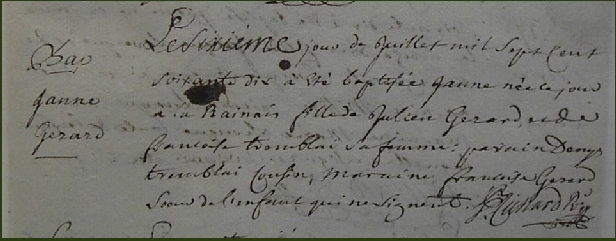 Bap
Janne
Gerard
Le sixieme jour de Juillet mil sept cent
soixante dix à été baptisée Janne née ce jour
a la Rainais fille de Julien Gerard, et de
francoise tremblai sa femme: parain Denys
tremblai Cousin, Maraine françoise Gerard
Soeur de l'enfant qui ne signent.